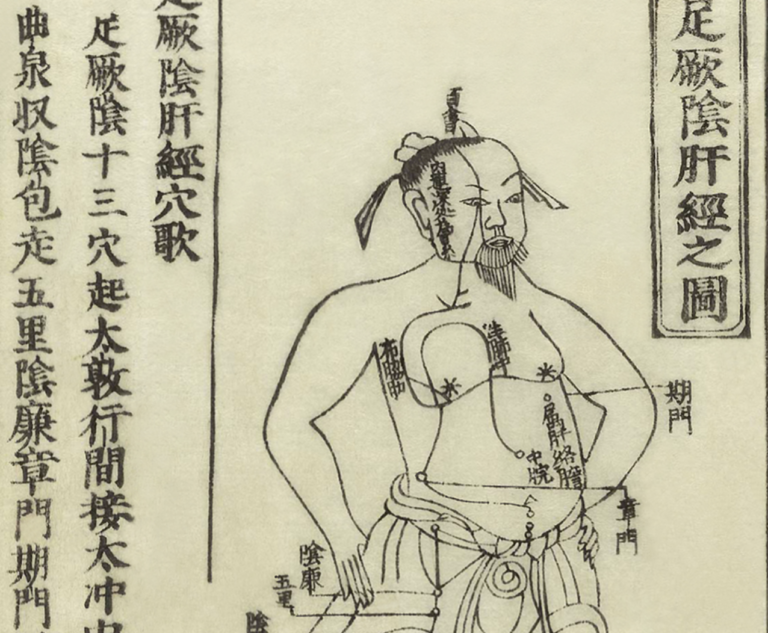 足厥陰肝經之圖
百會
注肺中
布脇中
期門
屬肝絡膽
中脘
章門
陰廉
五里
陰
足厥陰肝經穴歌
足厥陰十三穴起太敦行間接太冲中
曲泉収陰包走五里陰廉章門期門